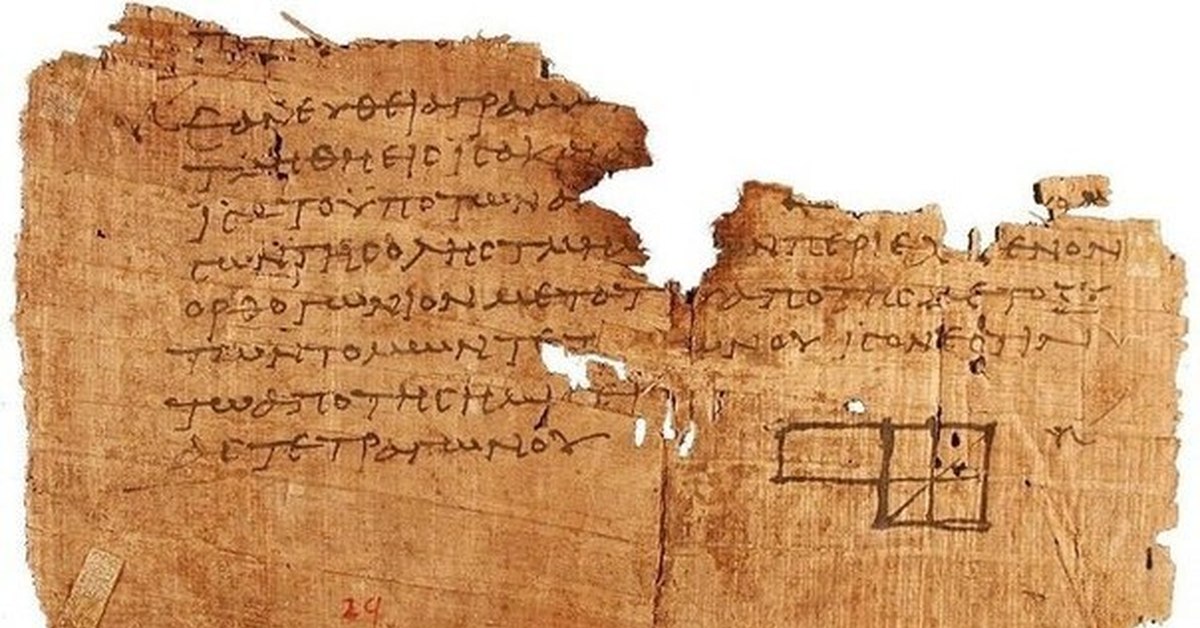 ΕΑΝ ΕΥΘΕΙΑ ΓΡΑΜΜ
ΤΜΗΘΗ ΕΙϹ ΙϹΑ ΚΑΙ
ΙϹΑ ΤΟ ΥΠΟ ΤΩΝ Α
ϹΩΝ ΤΗϹ ΟΛΗϹ ΤΜΗΜ Ν ΠΕΡΙΕΧ ΕΝΟΝ
ΟΡΘΟΓΩΝΙΟΝ ΜΕΤΑ Τ ΑΠΟ ΤΗϹ ΜΕΤΟΞΥ
ΤΩΝ ΤΟΜΩΝ ΤΕΤ ΩΝΟΥ ΙϹΟΝ ΕϹΤΙΝ
ΤΩ ΑΠΟ ΤΗϹ ΗΜΙϹΕΙ
ΑϹ ΤΕΤΡΑΓΩΝΟΥ
29